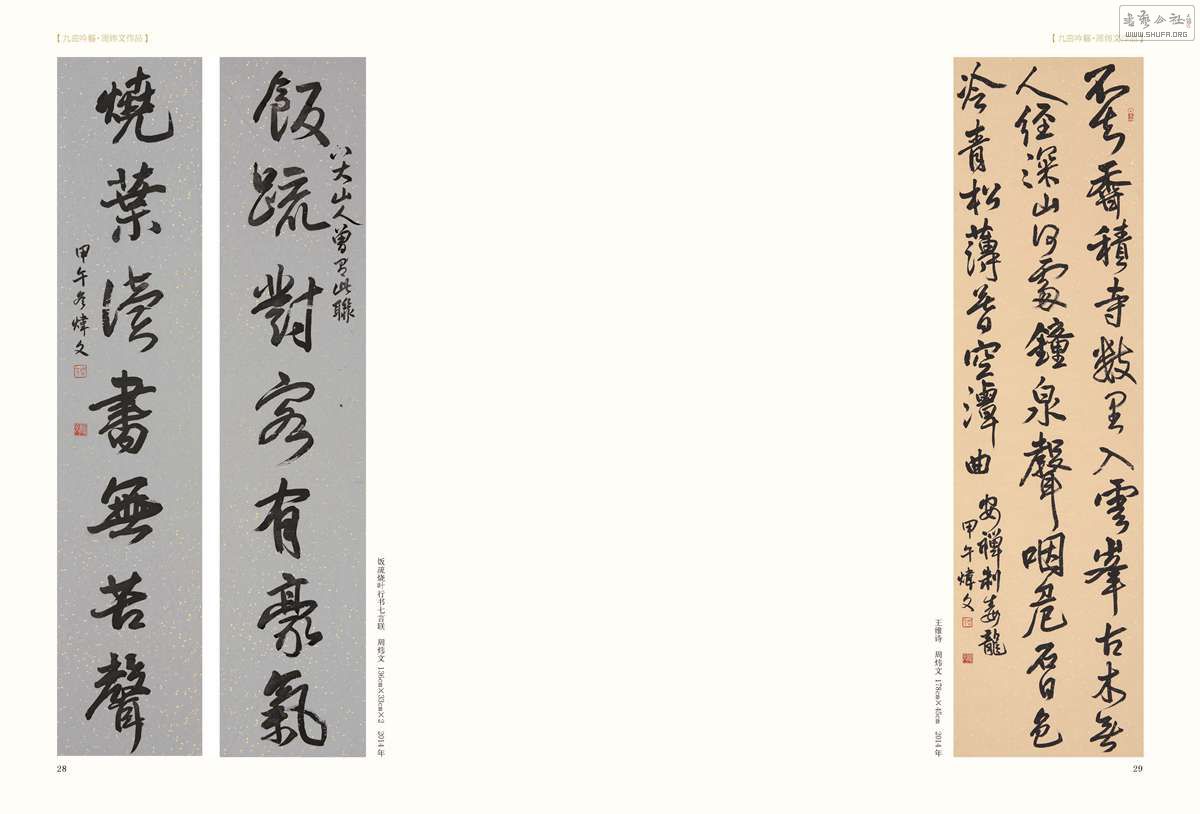 周炜文作品】
飯疏對客有豪氣
八大山人曾 此聯
燒葉讀書無苦聲
甲午冬煒文
饭疏烧叶行书七言联 周炜文 136cm×33cm×2 2014年
28
周炜文作品】
書藝公社
WWW.SHUFA.ORG
不知香積寺數里入雲峯古木無
人徑深山何處鐘泉聲咽危石日色
冷青松薄暮空潭曲
安禪制毒龍
甲午煒文
王维诗 周炜文 178cm×45cm 2014年
29